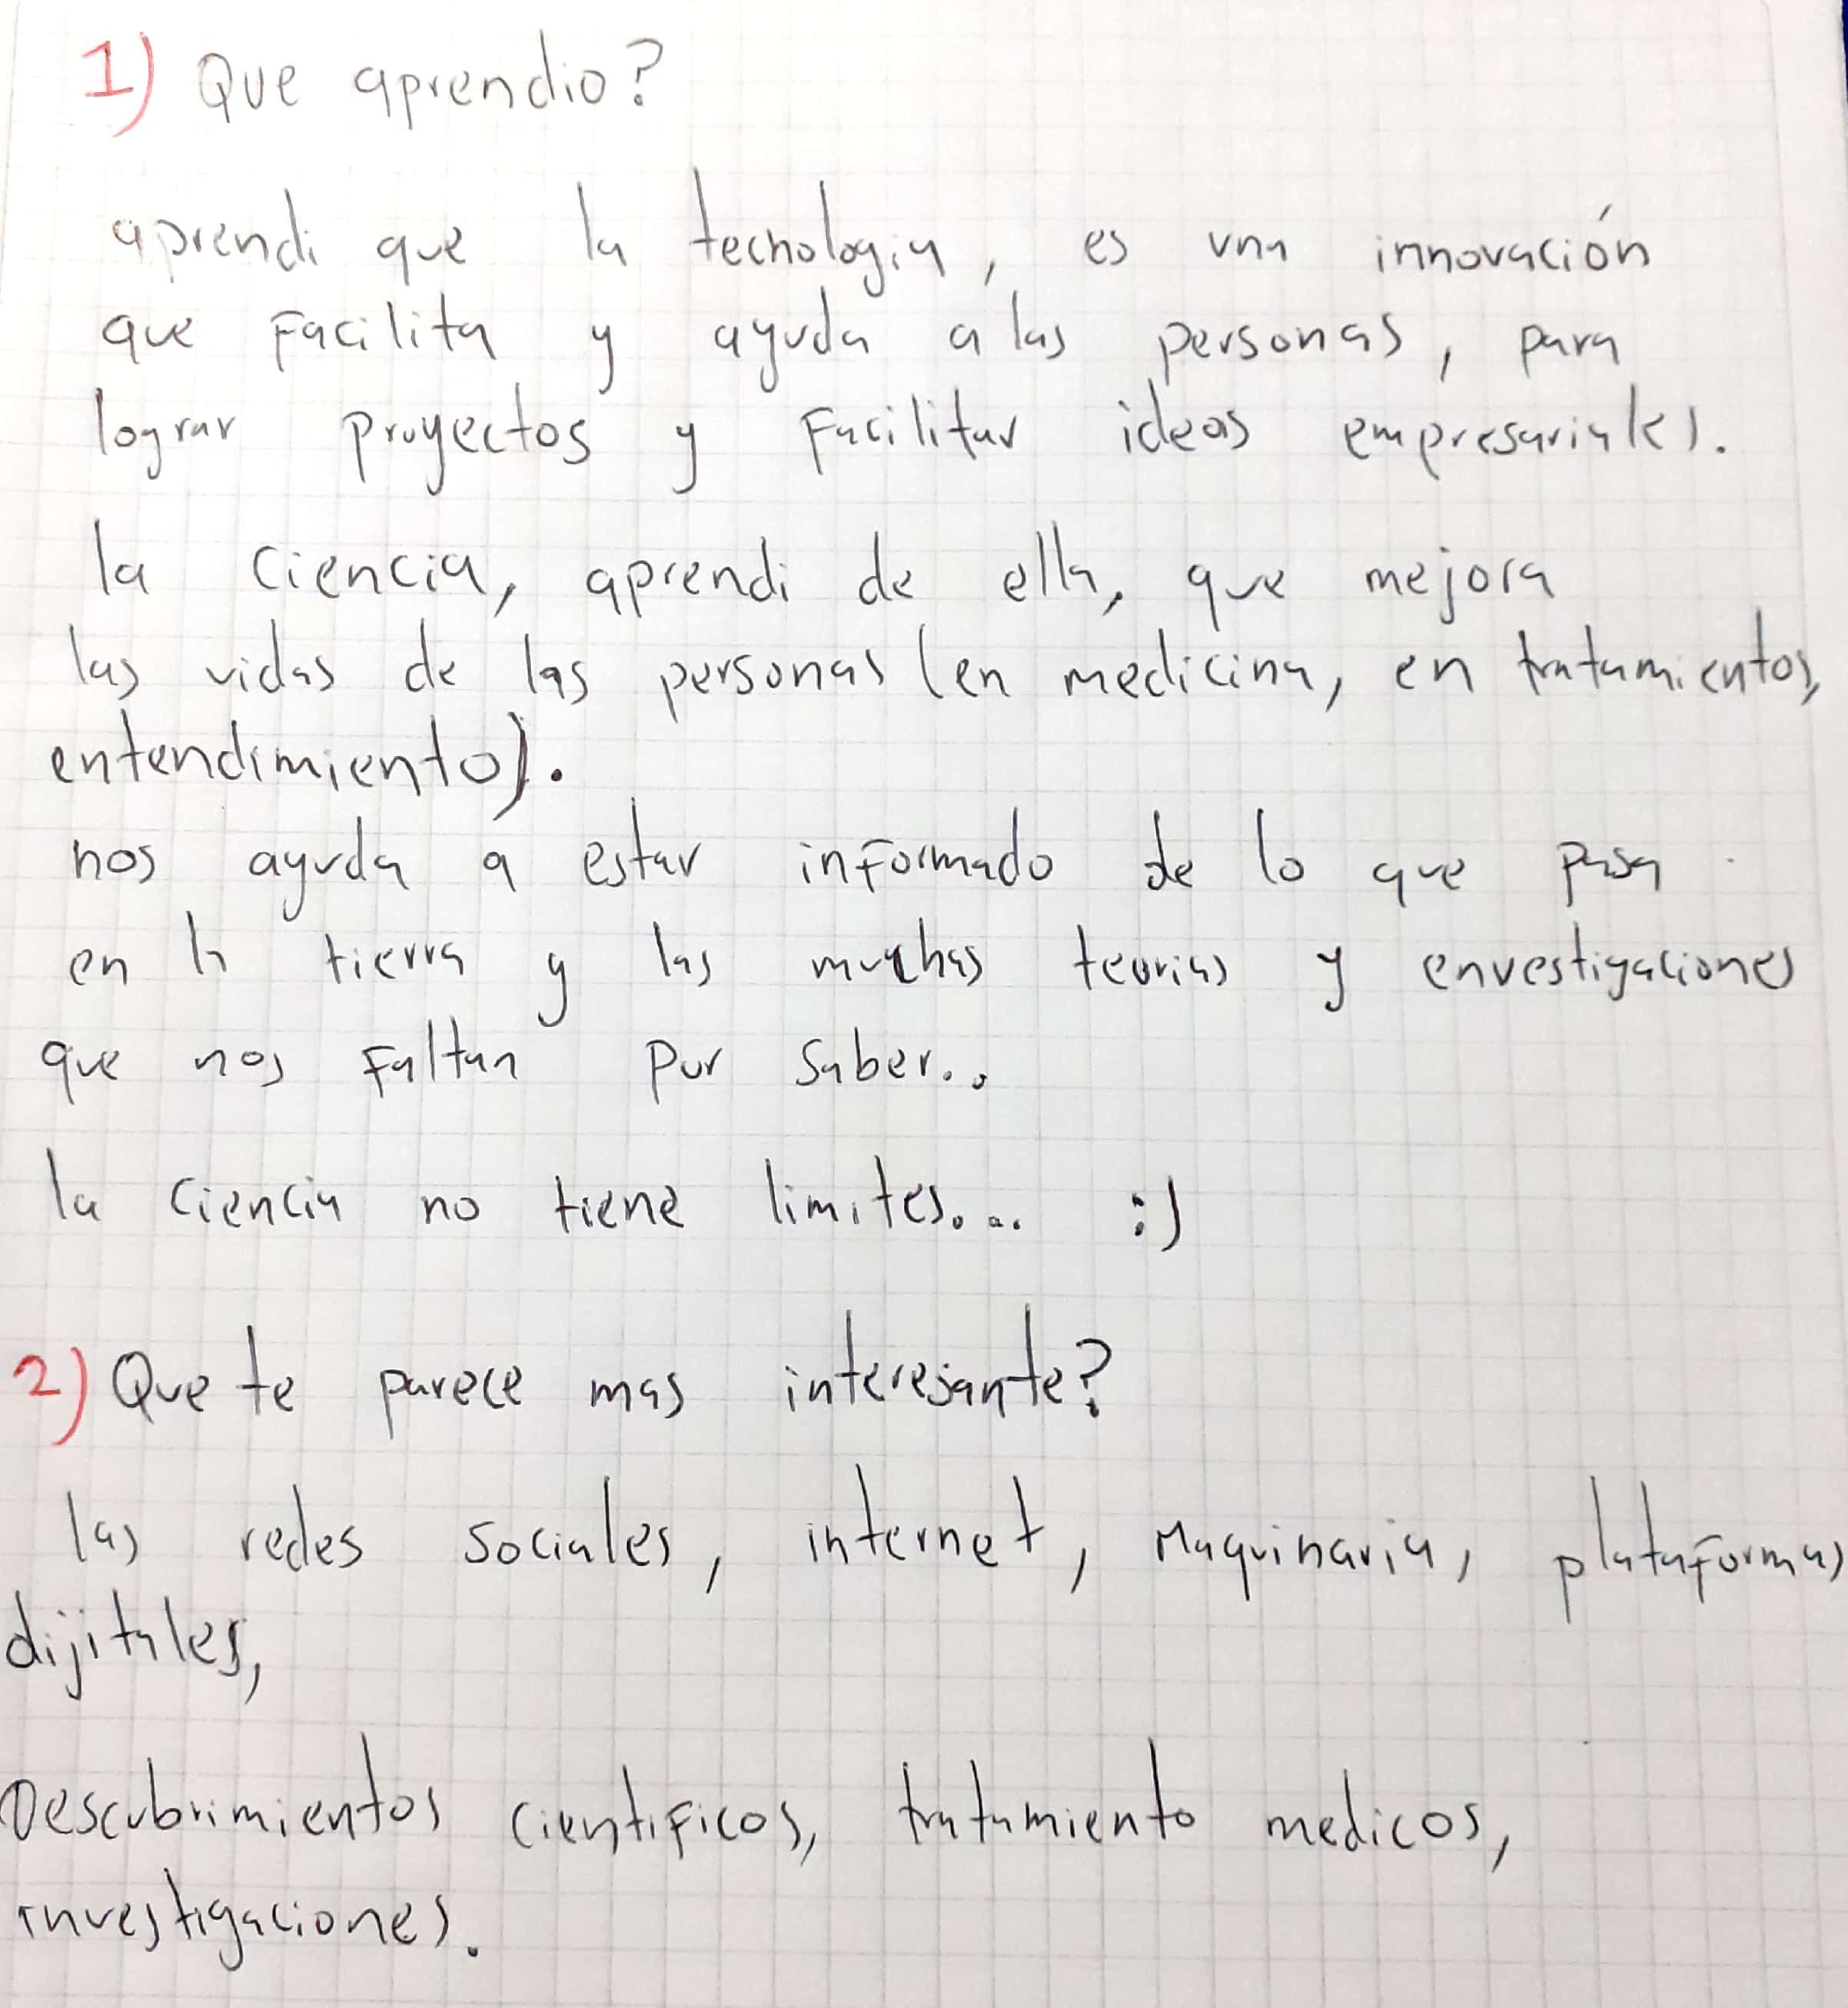 1) Que aprendio?
aprendi que la tecnologia, es una innovación
que Facilita y ayuda a las personas, para
lograr proyectos y Facilitar ideas empresariales.
la ciencia, aprendi de ella, que mejora
las vidas de las personas (en medicina, en tratamientos,
entendimiento).
nos ayuda a estar informado de lo que pasa
en la tierra y las muchas teorias y envestigaciones
que nos Faltan por saber..
la ciencia no tiene limites... :)
2) Que te parece mas interesante?
las redes sociales, internet, Maquinaria, plataformas
dijitales,
Descubrimientos cientificos, tratamiento medicos,
investigaciones.